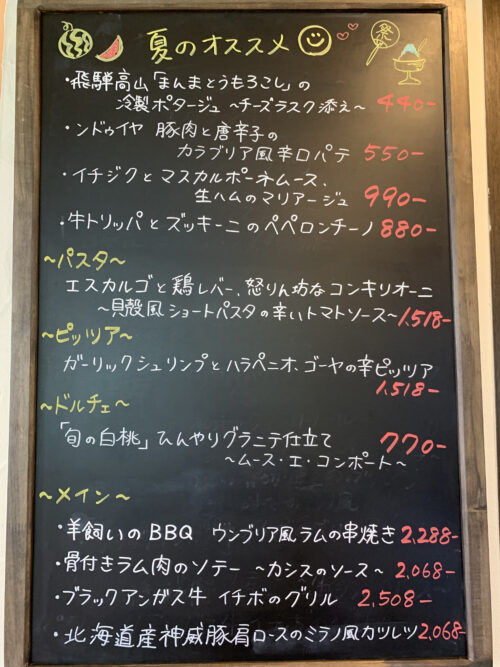 夏のオススメ
祭
・飛騨高山「まんまとうもろこし」の
冷製ポタージュ ~チーズラスク添え~ 440-
・ンドゥイヤ 豚肉と唐辛子の
カラブリア風辛口パテ 550-
・イチジクとマスカルポーネムース、
生ハムのマリアージュ 990-
・牛トリッパとズッキーニのペペロンチーノ 880-
~パスタ~
エスカルゴと鶏レバー、怒りん坊なコンキリオーニ
~貝殻風ショートパスタの辛いトマトソース~ 1,518-
~ピッツア~
ガーリックシュリンプとハラペニオ、ゴーヤの辛ピッツア
1,518-
~ドルチェ~
「旬の白桃」ひんやりグラニテ仕立て 770-
~ムース・エ・コンポート~
~メイン~
・羊飼いのBBQ ウンブリア風ラムの串焼き 2,288-
・骨付きラム肉のソテー ~カシスのソース~ 2,068-
・ブラックアンガス牛 イチボのグリル 2,508-
・北海道産神威豚肩ロースのミラノ風カツレツ 2,068-